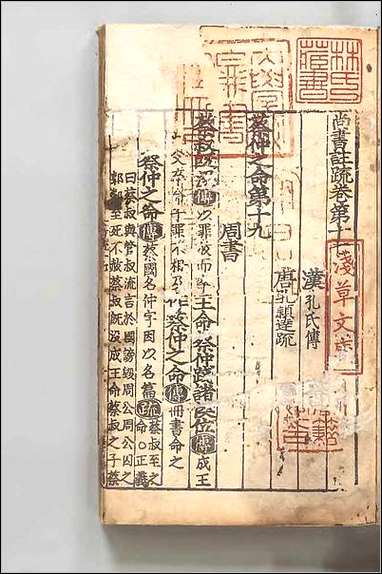 尚書註疏卷第十
漢孔氏傳
唐孔穎達疏
蔡仲之命第十九
周書
蔡叔既沒以罪放而卒王命蔡仲踐諸侯位傳成王
父卒命子罪不相及作蔡仲之命傳冊書命之
蔡仲之命傳蔡國名仲字因以名篇疏蔡叔至之命○正義
曰蔡叔與管叔流言於國謗毀周公周公囚之
郭鄰至死不赦蔡叔既沒成王命蔡叔之子蔡
林氏藏書
淺草文庫